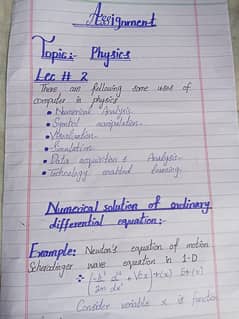 Assignment
Topic:- Physics
Lec # 2
There are following some uses of
computer in physics
• Numerical Analysis.
• Symbol manipulation.
• Visualization.
• Simulation.
• Data acquisition & Analysis.
• Technology enabled learning.
Numerical solution of ordinary
differential equation:-
Example: Newton's equation of motion
Schrodinger wave equation in 1-D
Consider variable x is function